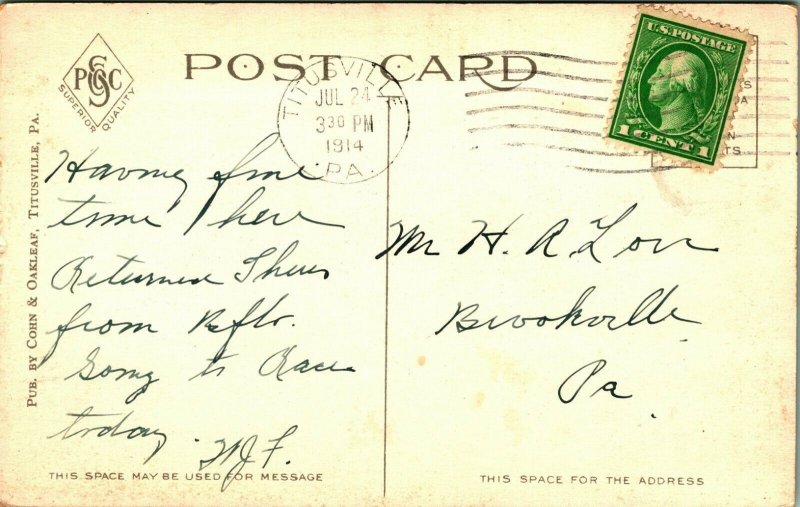 POST CARD
PCSC
SUPERIOR QUALITY
TITUSVILLE
JUL 24
3 30 PM
1914
PA.
U.S. POSTAGE
1 CENT 1
PUB. BY COHN & OAKLEAF, TITUSVILLE, PA.
Having fine
time here
Returned Thurs
from Bflo.
Going to Races
today.
W.J.F.
Mr H. A. Lorr
Brookville
Pa.
THIS SPACE MAY BE USED FOR MESSAGE
THIS SPACE FOR THE ADDRESS